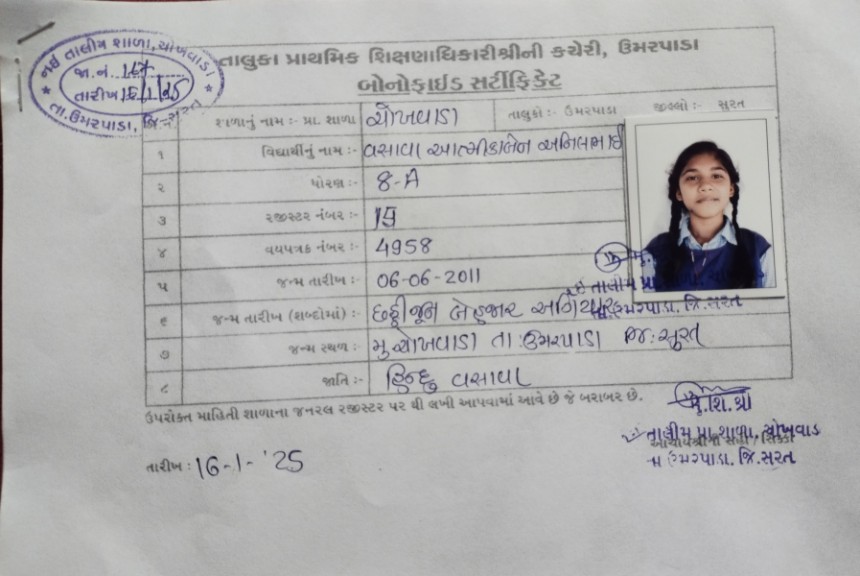 નઇ તાલીમ શાળા, ચોખવાડા
જા.નં. 167
તારીખ 16/1/25
તા.ઉમરપાડા, જિ-સુરત
તાલુકા પ્રાથમિક શિક્ષણાધિકારીશ્રીની કચેરી, ઉમરપાડા
બોનોફાઇડ સર્ટીફિકેટ
શાળાનું નામ :- પ્રા. શાળા ચોખવાડા તાલુકો :- ઉમરપાડા જીલ્લો :- સુરત
૧ વિદ્યાર્થીનું નામ :- વસાવા આત્મીકાબેન અનિલભાઈ
૨ ધોરણ :- 8-A
૩ રજીસ્ટર નંબર :-
૪ વયપત્રક નંબર :- 4958
૫ જન્મ તારીખ :- 06-06-2011
૬ જન્મ તારીખ (શબ્દોમાં) :- છઠ્ઠીજૂન બેહજાર અગિયાર
તાલીમ પ્રા
ઉમરપાડા. જિ.સુરત
૭ જન્મ સ્થળ :- મુ.ચોખવાડા તા:ઉમરપાડા જિ:સુરત
૮ જાતિ :- હિન્દુ વસાવા
ઉપરોક્ત માહિતી શાળાના જનરલ રજીસ્ટર પર થી લખી આપવામાં આવે છે જે બરાબર છે.
મુ.શિ.શ્રી
તાલીમ પ્રા.શાળા, ચોખવાડ
આચાર્યશ્રીની સહી / સિક્કો
ઉમરપાડા. જિ.સુરત
તારીખ : 16-1-'25